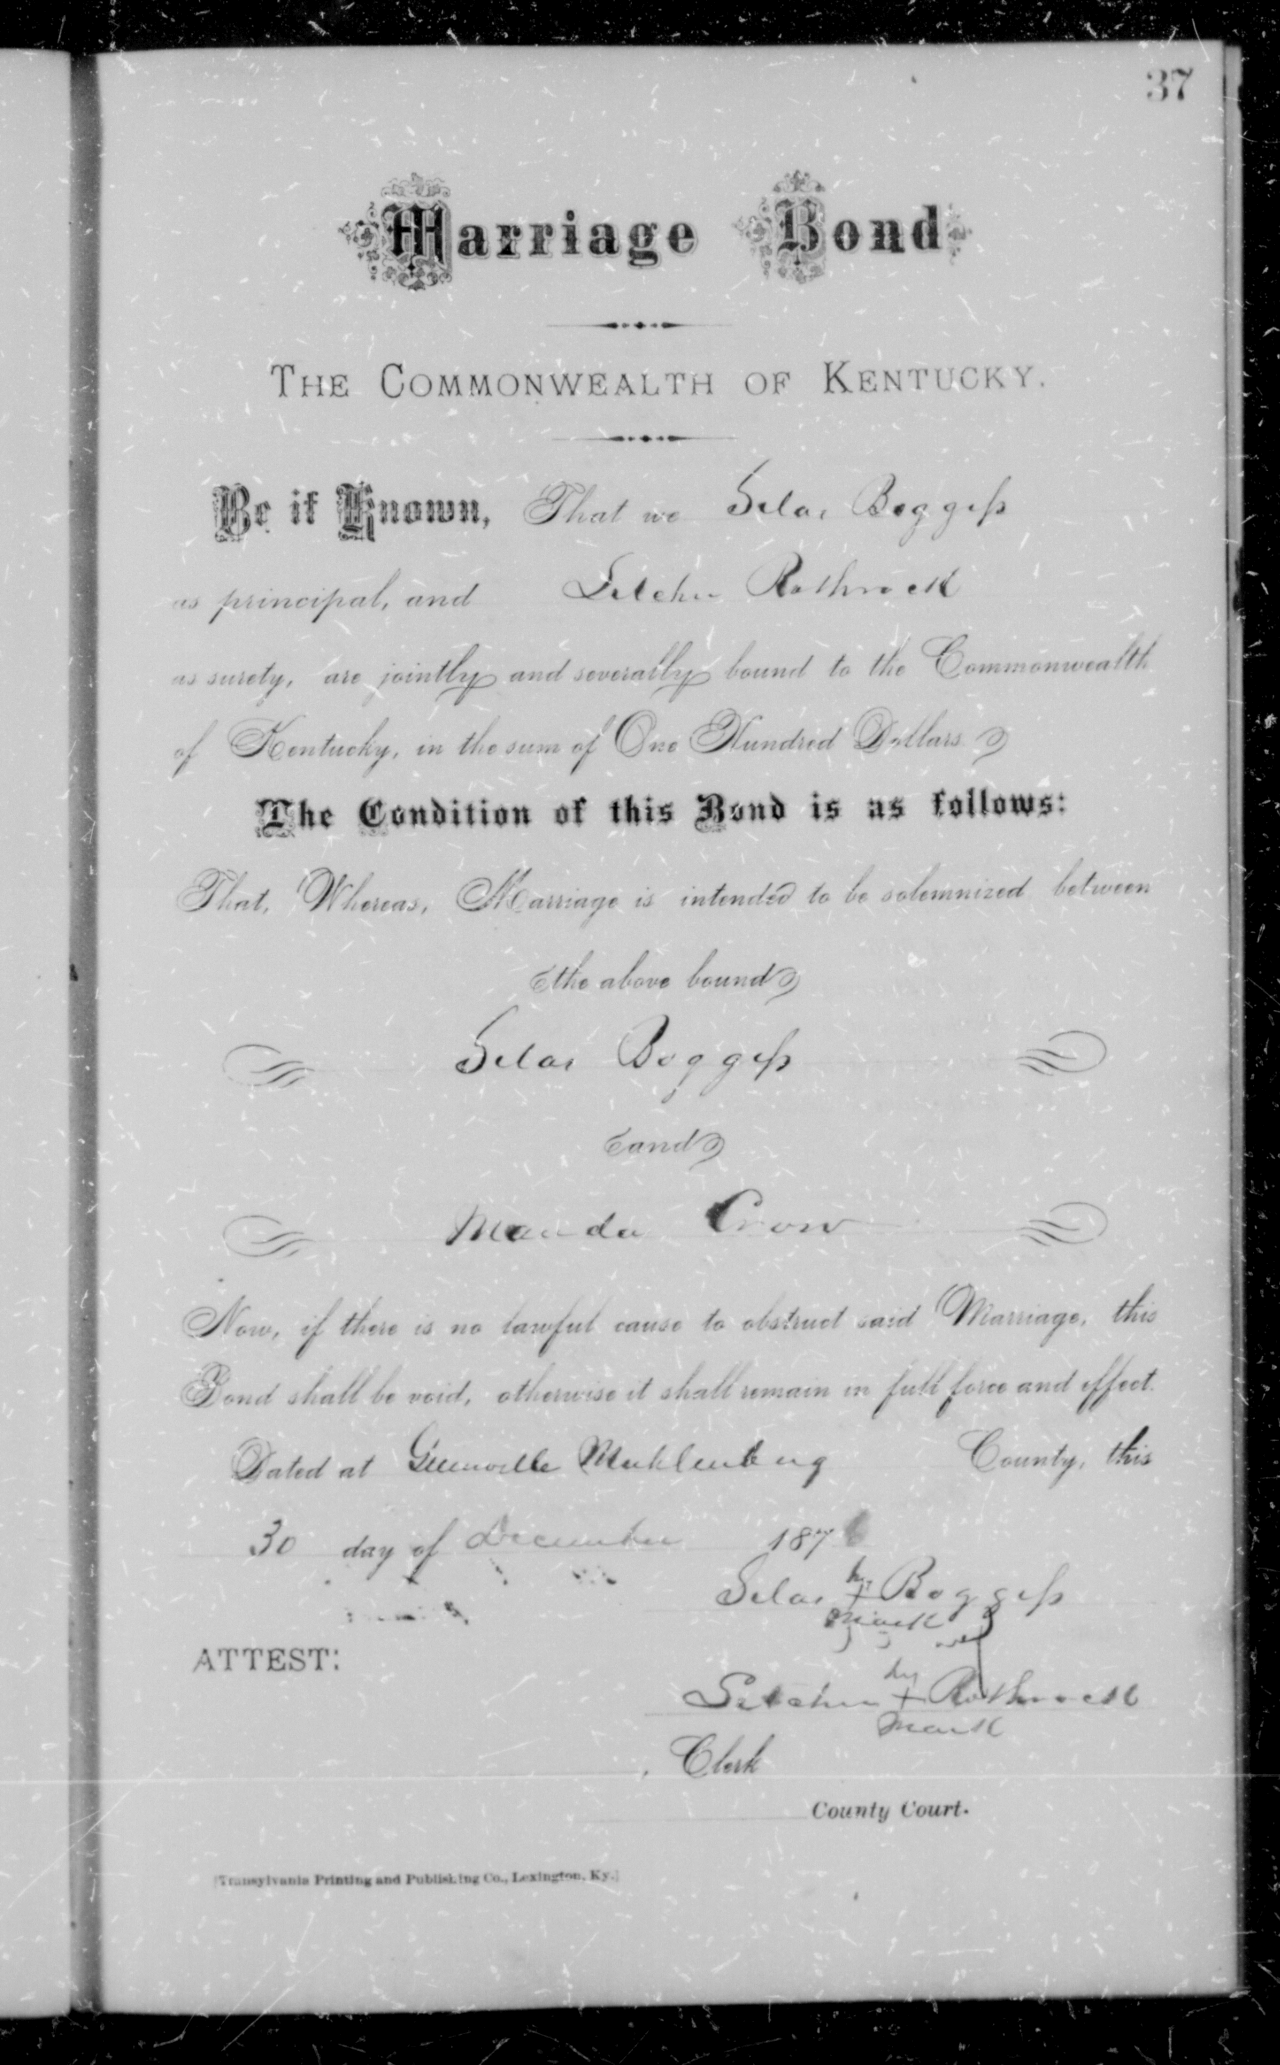 37
Marriage Bond
THE COMMONWEALTH OF KENTUCKY.
Be it Known, That we Silas Boggess
as principal, and Letcher Rothrock
as surety, are jointly and severally bound to the Commonwealth
of Kentucky, in the sum of One Hundred Dollars.
The Condition of this Bond is as follows:
That, Whereas, Marriage is intended to be solemnized between
the above bound
Silas Boggess
and
Manda Crow
Now, if there is no lawful cause to obstruct said Marriage, this
Bond shall be void, otherwise it shall remain in full force and effect.
Dated at Greenville Muhlenberg County, this
30 day of December 1876
Silas his + Boggess
mark
ATTEST:
Letcher his + Rothrock
mark
, Clerk
County Court.
[Transylvania Printing and Publishing Co., Lexington, Ky.]